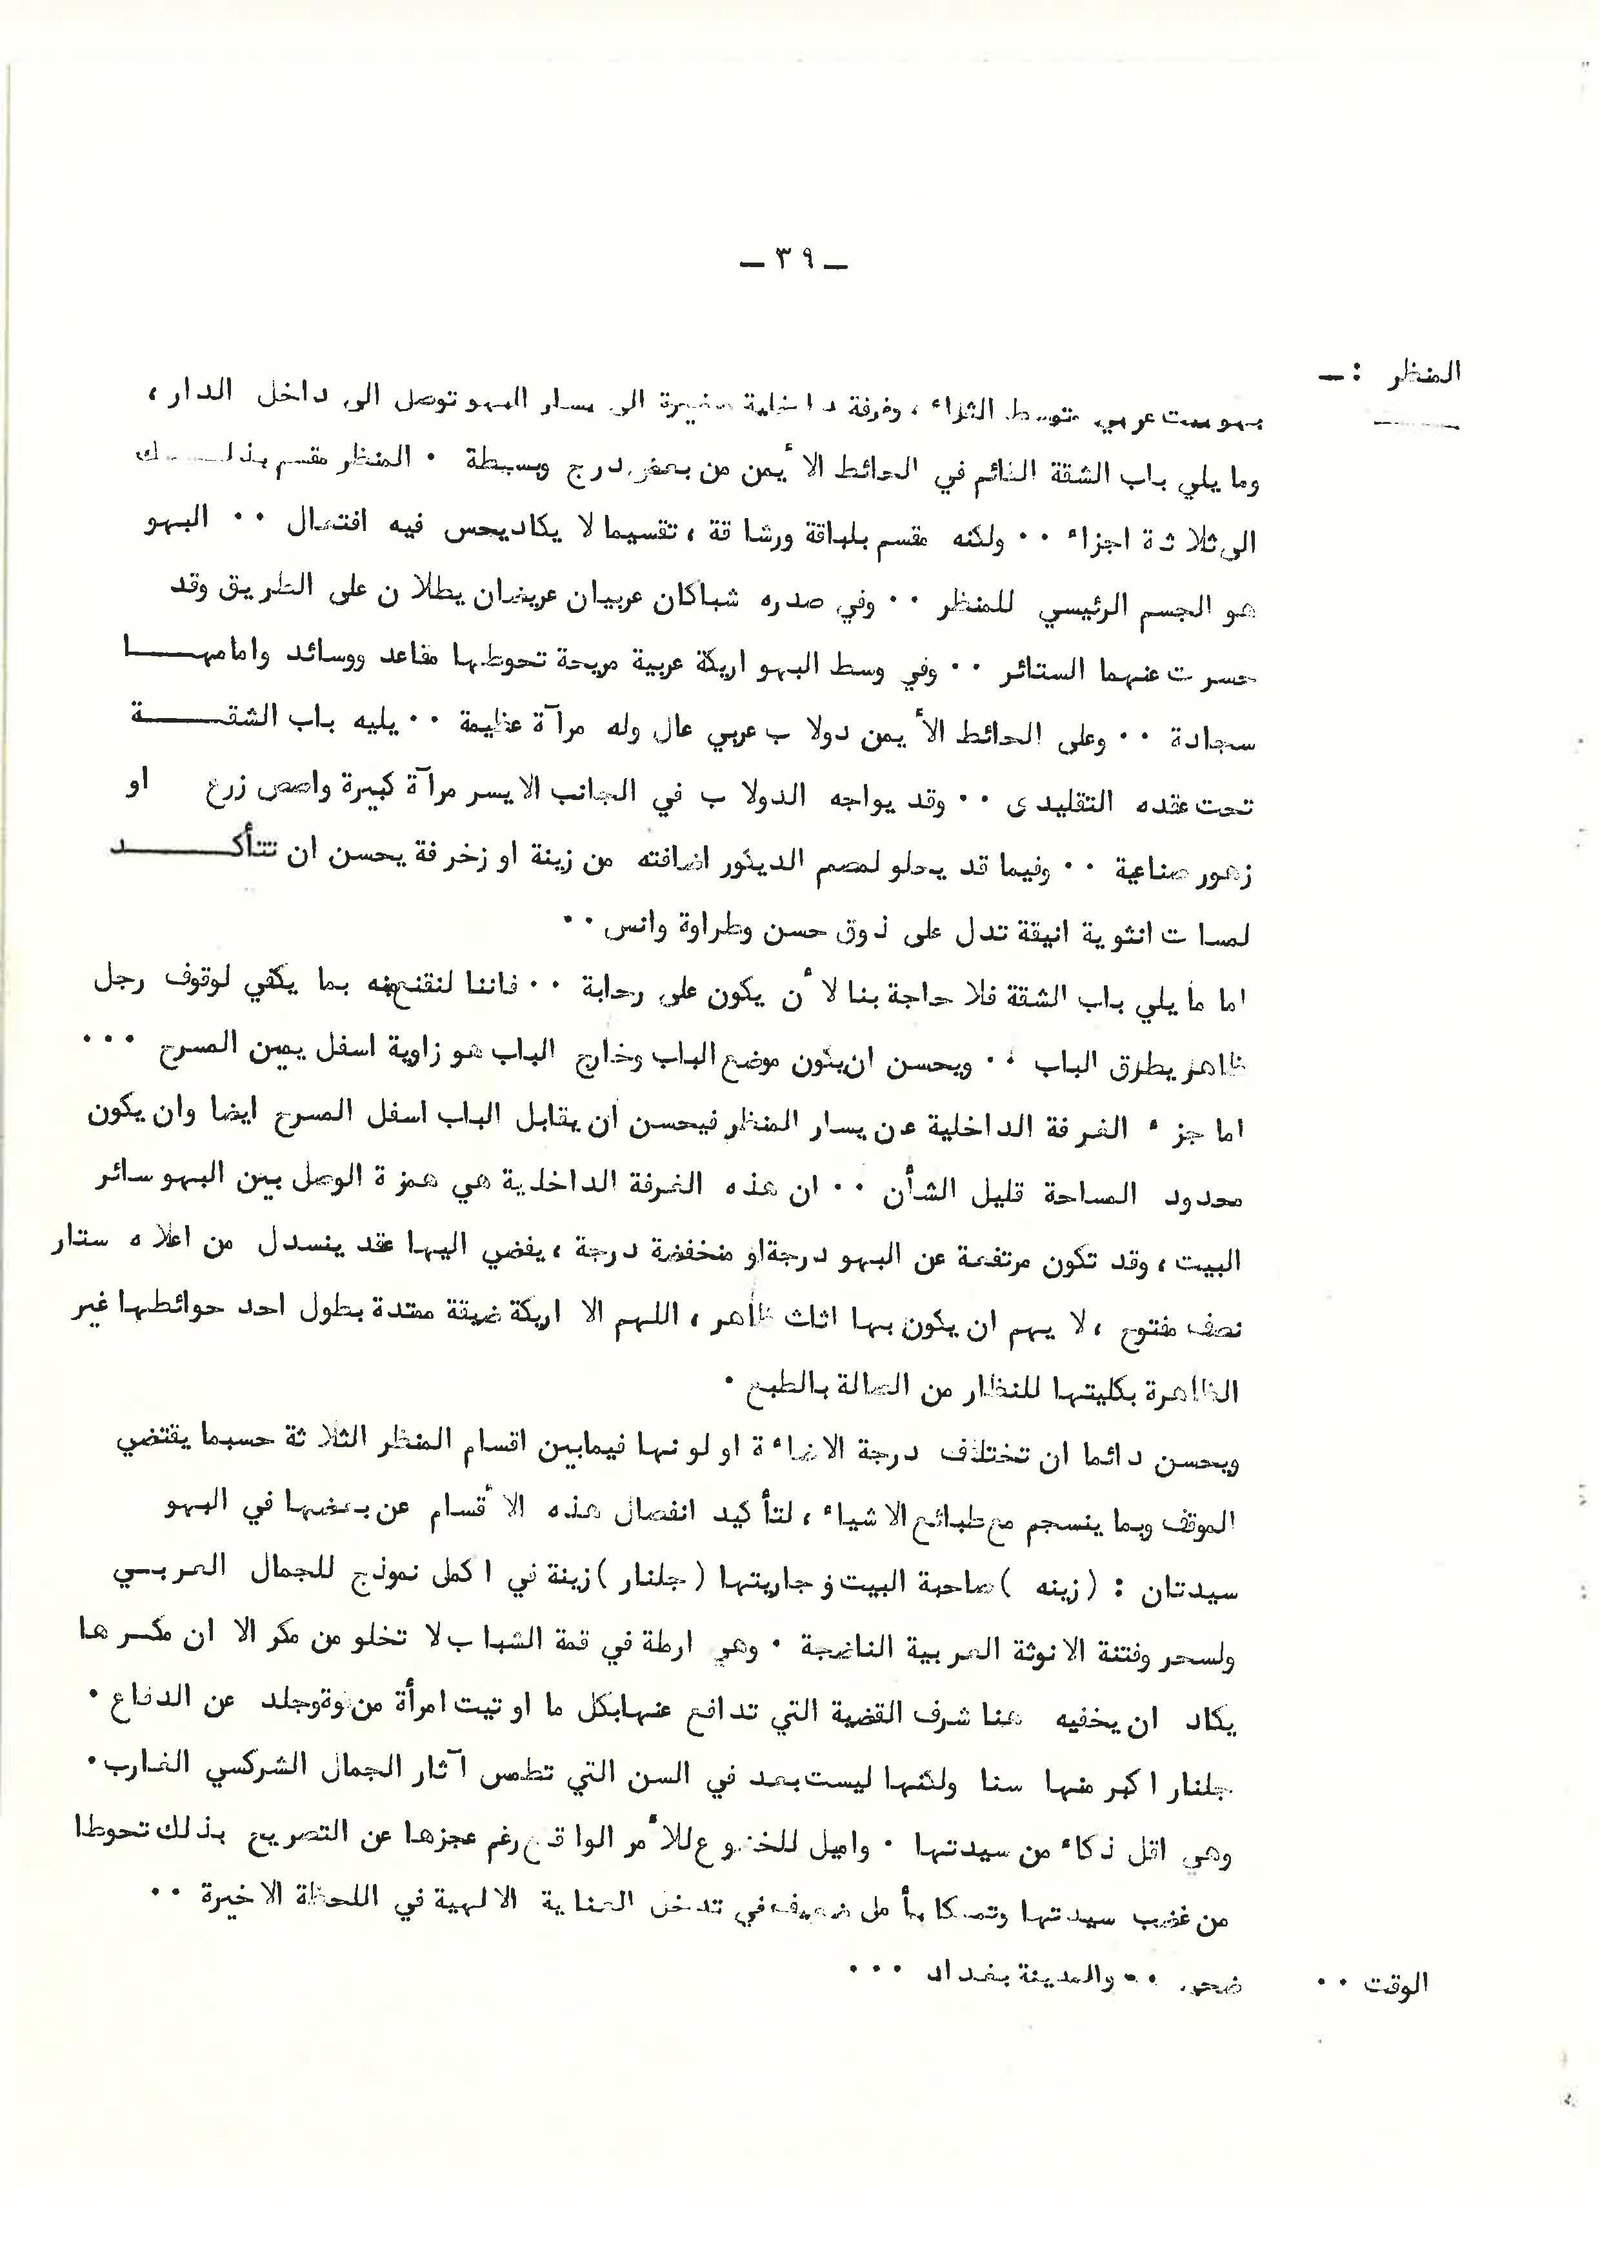 ــ ٣٩ ــ
المنظر : ــ
بهو بيت عربي متوسط الثراء ، وغرفة داخلية صغيرة الى يسار البهو توصل الى داخل الدار ،
وما يلي باب الشقة القائم في الحائط الأيمن من بعض درج وبسيطة ٠ المنظر مقسم بذلـــــك
الى ثلاثة اجزاء ٠٠ ولكنه مقسم بلباقة ورشاقة ، تقسيما لا يكاد يحس فيه افتعال ٠٠ البهو
هو الجسم الرئيسي للمنظر ٠٠ وفي صدره شباكان عربيان عريضان يطلان على الطريق وقد
حسرت عنهما الستائر ٠٠ وفي وسط البهو اريكة عربية مريحة تحوطها مقاعد ووسائد وامامهـــا
سجادة ٠٠ وعلى الحائط الأيمن دولاب عربي عال وله مرآة عظيمة ٠٠ يليه باب الشقـــة
تحت عقده التقليدى ٠٠ وقد يواجه الدولاب في الجانب الايسر مرآة كبيرة واصص زرع او
زهور صناعية ٠٠ وفيما قد يحلو لمصمم الديكور اضافته من زينة او زخرفة يحسن ان تتأكـــد
لمسات انثوية انيقة تدل على ذوق حسن وطراوة وانس ٠٠
اما ما يلي باب الشقة فلا حاجة بنا لأن يكون على رحابة ٠٠ فاننا لنقنع منه بما يكفي لوقوف رجل
ظاهر يطرق الباب ٠٠ ويحسن ان يكون موضع الباب وخارج الباب هو زاوية اسفل يمين المسرح ٠٠٠
اما جزء الغرفة الداخلية عن يسار المنظر فيحسن ان يقابل الباب اسفل المسرح ايضا وان يكون
محدود المساحة قليل الشأن ٠٠ ان هذه الغرفة الداخلية هي همزة الوصل بين البهو سائر
البيت ، وقد تكون مرتفعة عن البهو درجة او منخفضة درجة ، يفضي اليها عقد ينسدل من اعلاه ستار
نصف مفتوح ، لا يهم ان يكون بها اثاث ظاهر ، اللهم الا اريكة ضيقة ممتدة بطول احد حوائطها غير
الظاهرة بكليتها للنظار من الصالة بالطبع ٠
ويحسن دائما ان تختلف درجة الاضاءة او لونها فيمابين اقسام المنظر الثلاثة حسبما يقتضي
الموقف وبما ينسجم مع طبائع الاشياء ، لتأكيد انفصال هذه الأقسام عن بعضها في البهو
سيدتان : ( زينه ) صاحبة البيت و جاريتها ( جلنار ) زينة في اكمل نموذج للجمال العربــي
ولسحر وفتنة الانوثة العربية الناضجة ٠ وهي ارملة في قمة الشباب لا تخلو من مكر الا ان مكـرها
يكاد ان يخفيه هنا شرف القضية التي تدافع عنها بكل ما اوتيت امرأة من قوة وجلد عن الدفاع ٠
جلنار اكبر منها سنا ولكنها ليست بعد في السن التي تطمس آثار الجمال الشركسي الغارب ٠
وهي اقل ذكاء من سيدتها ٠ واميل للخنوع للأمر الواقع رغم عجزها عن التصريح بذلك تحوطا
من غضب سيدتها وتمسكا بأمل ضعيف في تدخل العناية الالهية في اللحظة الاخيرة ٠٠
الوقت ٠٠ ضحى ٠٠ والمدينة بغداد ٠٠٠